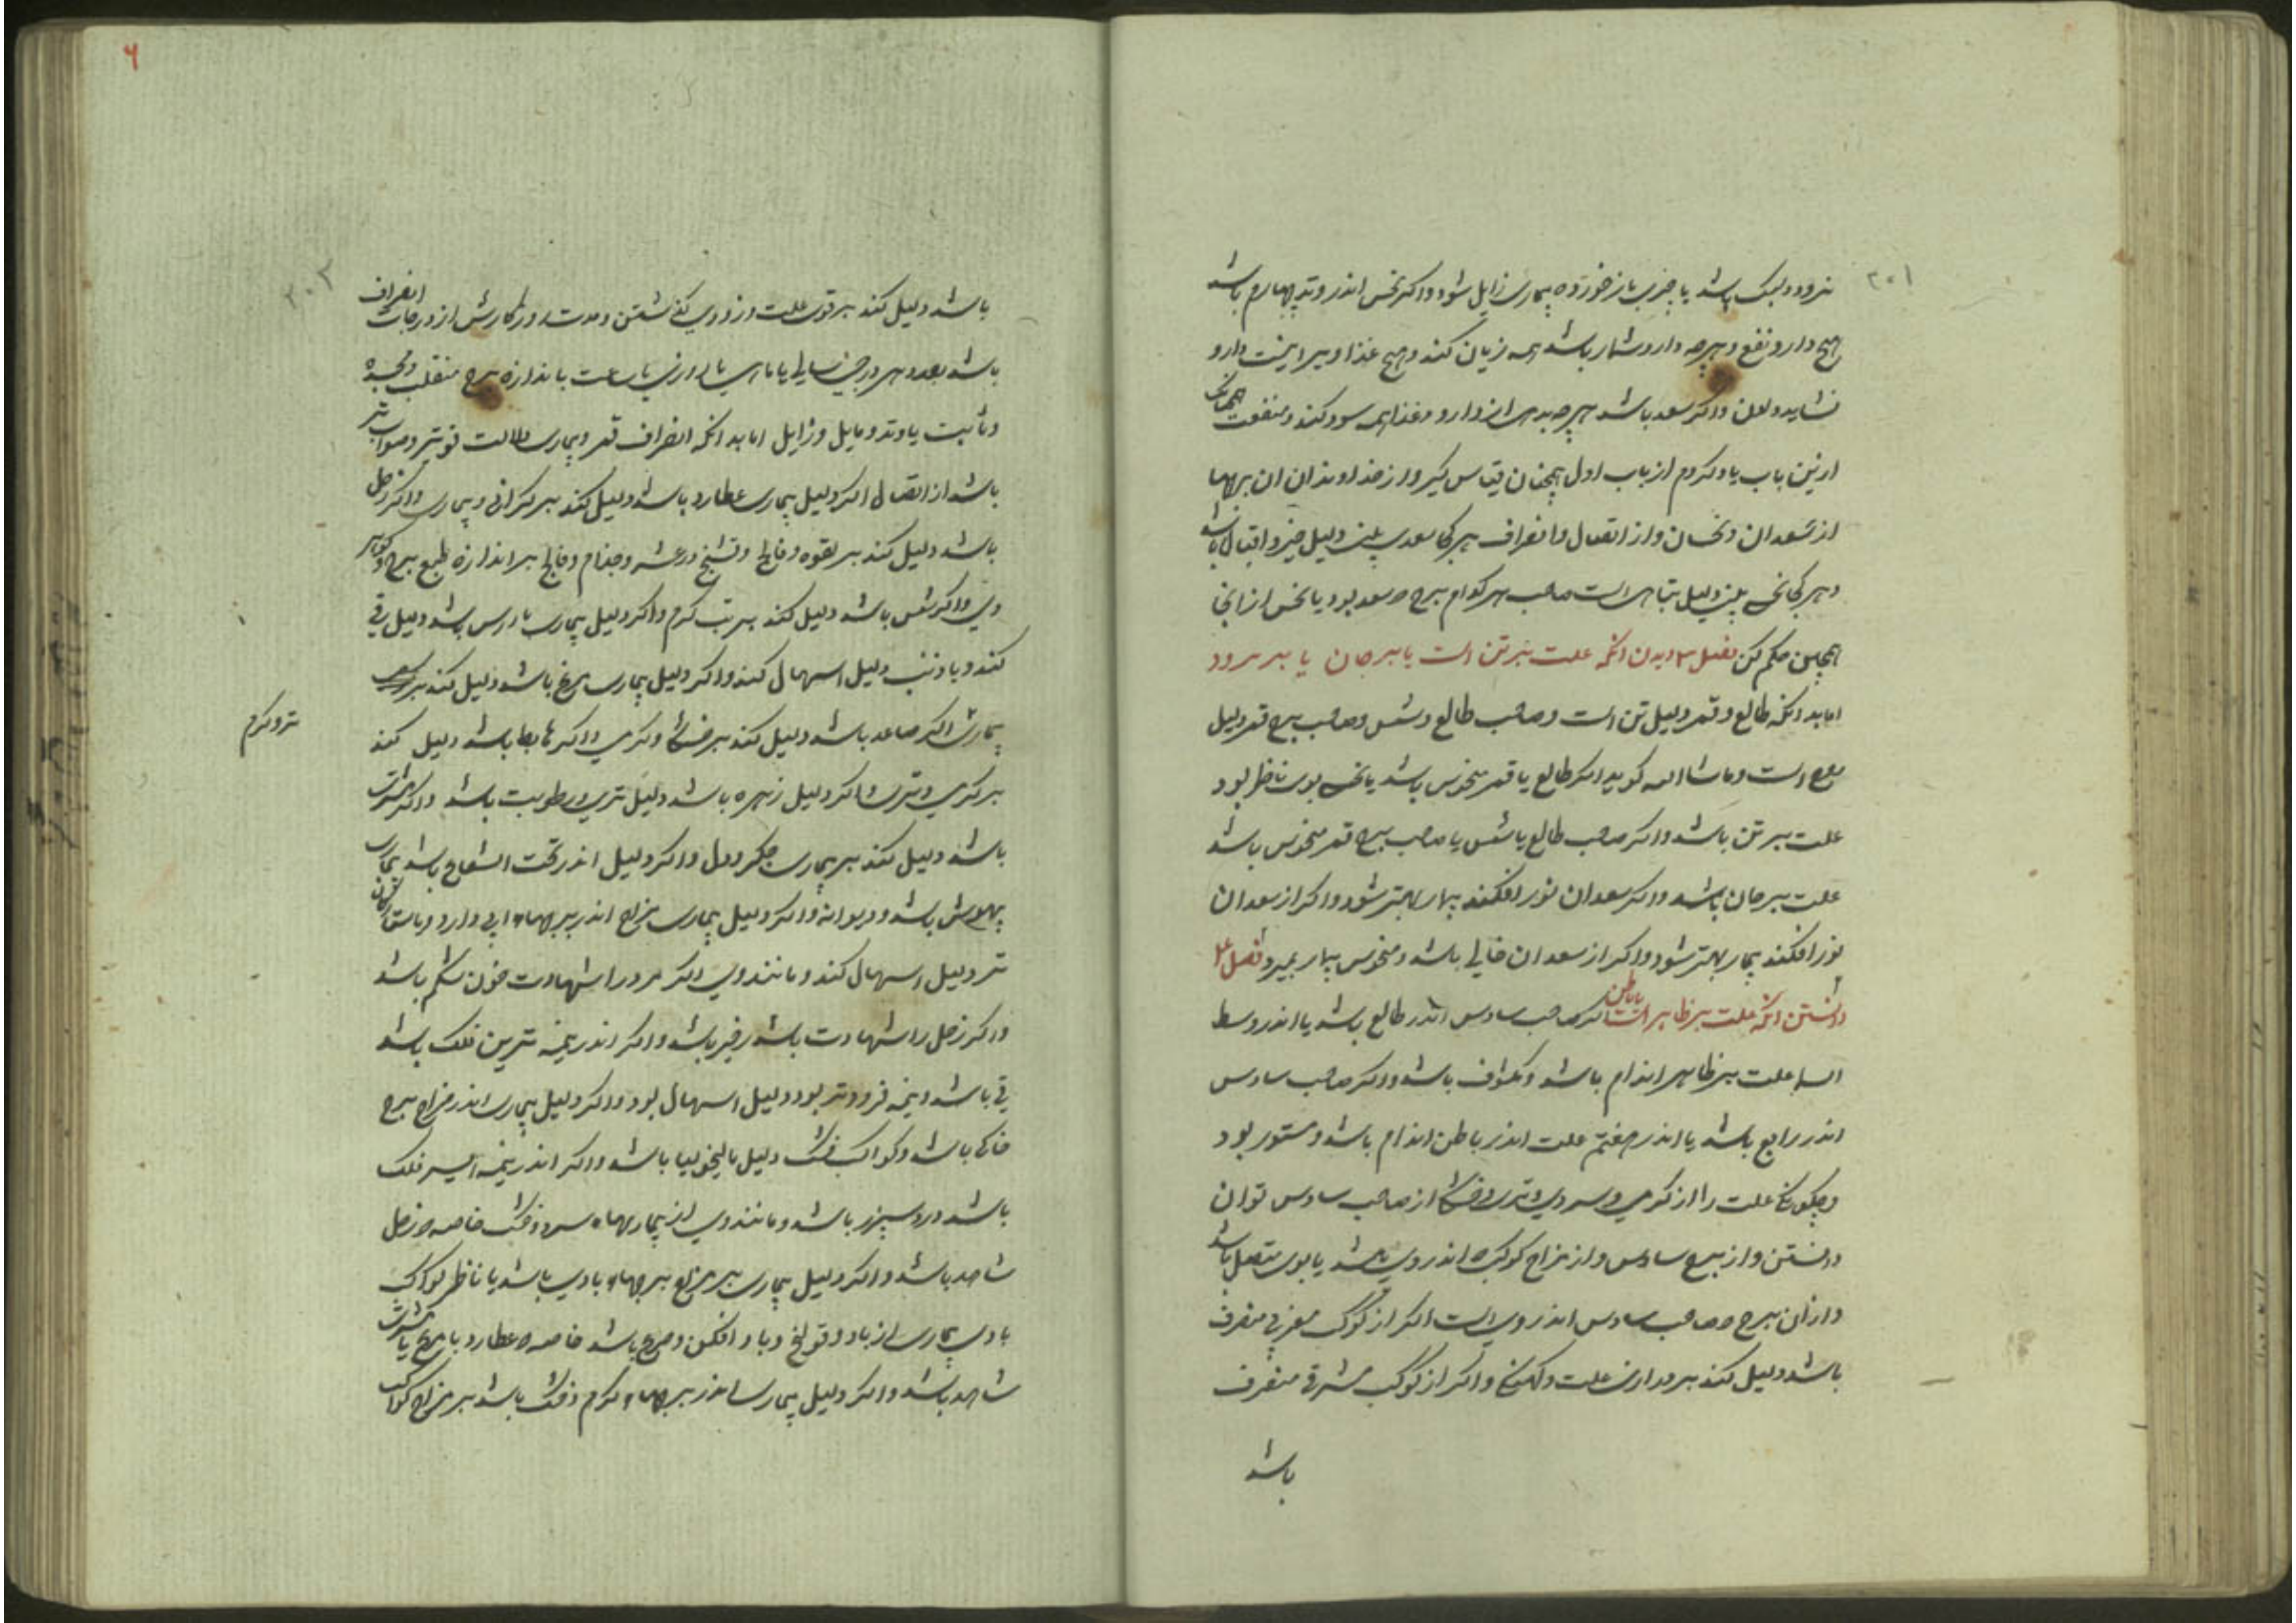 ۲۰۱
نرود ولیک باشد یا چیزی باز خورده بیماری زایل شود واکر نحس اندر وتد چهارم باشد
هیچ دارو نفع وهرچه دارو شمار باشد همه زیان کند وهیچ غذا وبرا نیست دارو
نشاید واکر سعد باشد هرچه بدهی از دارو وغذا همه سود کند ومنفعت همچنانک
ازین باب یاد کردم از باب اول همچنان قیاس کیر واز خداوندان ان برجها
از سعدان ونحسان واز اتصال وانصراف هرکجا سعدی بینی دلیل خیر واقبال باشد
وهر کجا نحس بینی دلیل تباهی است صاحب هر کدام برج که سعد بود یا نحس از انجا
همچنین حکم کن فصل ۳ دیدن انکه علت بر تن است یا بر جان یا بر هر دو
اما بدانکه طالع وقمر دلیل تن است وصاحب طالع وشمس وصاحب برج قمر دلیل
روح است وماشاالله کوید اکر طالع یا قمر منحوس باشد یا نحس بوی ناظر بود
علت بر تن باشد واکر صاحب طالع یا شمس یا صاحب برج قمر منحوس باشد
علت بر جان باشد واکر سعدان نور افکنند بیمار بهتر شود واکر از سعدان
نور افکند بیمار بهتر شود واکر از سعدان خالی باشد ومنحوس بیمار بمیرد فصل ۴
دانستن انکه علت بر ظاهر است یا باطن اکر صاحب سادس اندر طالع باشد یا اندر وسط
السما علت بر ظاهر اندام باشد ومکشوف باشد واکر صاحب سادس
اندر رابع باشد یا اندر هفتم علت اندر باطن اندام باشد ومستور بود
وچکونکی علت را از کرمی وسردی وتری وخشکی از صاحب سادس توان
دانستن واز برج سادس واز مزاج کوکب که اندر وی باشد یا بوی متصل باشد
وازان برج که صاحب سادس اندر وی است اکر از کوکب مغربی منصرف
باشد دلیل کند بر درازی علت وکهنکی واکر از کوکب مشرقی منصرف
باشد
۶
۲۰۲
باشد دلیل کند بر قوی علت وزودی کذشتن ومدت روزکارش از درجات انصراف
باشد بعدد هر درجی سالی یا ماهی یا روزی یا ساعت باندازه برج منقلب ومجسده
وثابت یا وتد ومایل وزایل اما بدانکه انصراف قمر وبیماری دلالت قویتر وصوابتر
باشد از اتصال اکر دلیل بیماری عطارد باشد دلیل کند بر کرانی وبیماری واکر زحل
باشد دلیل کند بر لقوه وفالج وتشنج ورعشه وجذام وفالج بر اندازه طبع برج وکوهر
وی واکر شمس باشد دلیل کند بر تب کرم واکر دلیل بیماری با راس باشد دلیل قی
کند وبا ذنب دلیل اسهال کند واکر دلیل بیماری مریخ باشد دلیل کند بر
بیمارش اکر صاعد باشد دلیل کند بر خشکی وکرمی واکر هابط باشد دلیل کند
تر وکرم
بر کرمی وتری واکر دلیل زهره باشد دلیل تری ورطوبت باشد واکر مشتری
باشد دلیل کند بر بیماری جکر ودل واکر دلیل اندر تحت الشعاع باشد بیماری
بیهوش باشد ودیوانه واکر دلیل بیماری مزاج اندر برجهاء ابی دارد وباستارکان
تر دلیل اسهال کند ومانند وی اکر مر ورا شهادت خون شکم باشد
واکر زحل را شهادت باشد زحیر باشد واکر اندر نیمه برین فلک باشد
قی باشد ونیمه فرودتر بود دلیل اسهال بود واکر دلیل بیماری اندر مزاج برج
خاکی باشد وکواکب خشک دلیل مالیخولیا باشد واکر اندر نیمه ایسر فلک
باشد درد سپرز باشد ومانند وی از بیماریهاء سرد وخشک خاصه که زحل
شاهد باشد واکر دلیل بیماری بر مزاج برجهاء بادی باشد یا ناظر کواکب
بادی بیماری از باد وقولنج وباد افکن وصرع باشد خاصه که عطارد با مریخ یا مشتری
شاهد باشد واکر دلیل بیماری اندر برجهاء کرم وخشک باشد بر مزاج کواکب